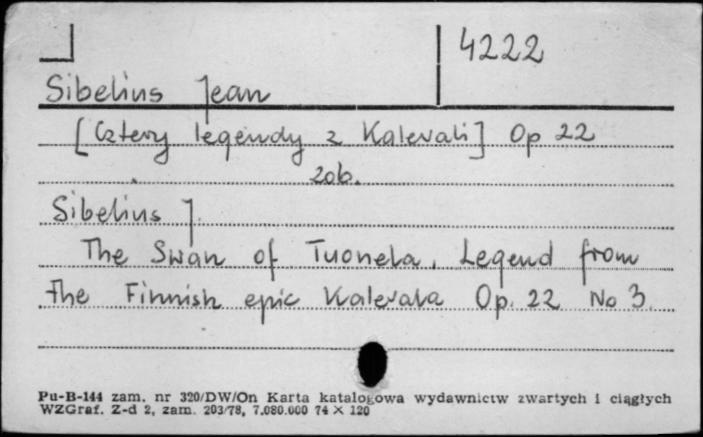 4222
Sibelius Jean
[Cztery legendy z Kalevali] Op 22
zob.
Sibelius J.
The Swan of Tuonela. Legend from
the Finnish epic Kalevala Op. 22 No 3.
Pu-B-144 zam. nr 320/DW/On Karta katalogowa wydawnictw zwartych i ciągłych
WZGraf. Z-d 2, zam. 203/78, 7.080.000 74 × 120